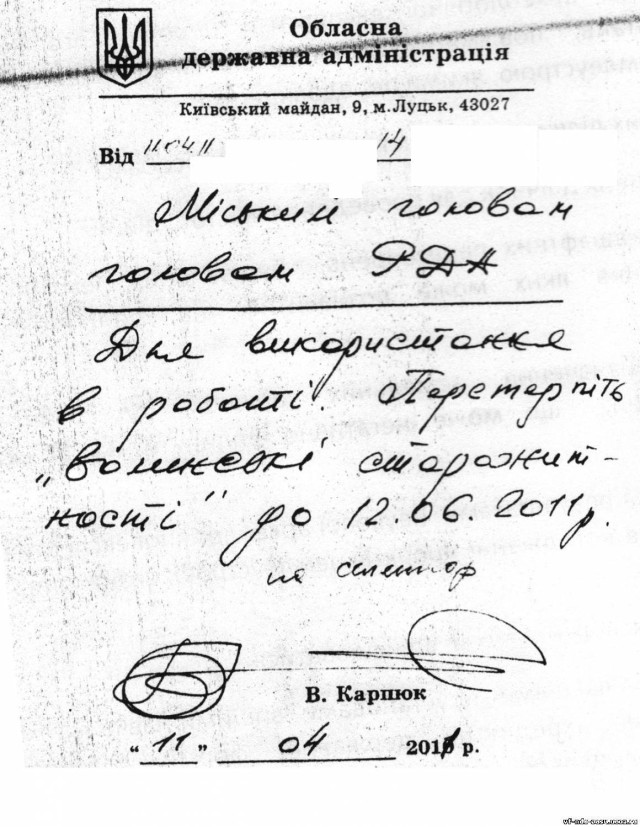 Обласна
державна адміністрація
Київський майдан, 9, м. Луцьк, 43027
Від 11.04.11 14
Міським головам
головам РДА
Для використання
в роботі. Перетерпіть
„Волинські старожит-
ності" до 12.06.2011 р.
на селектор
В. Карпюк
„ 11 " 04 2011 р.